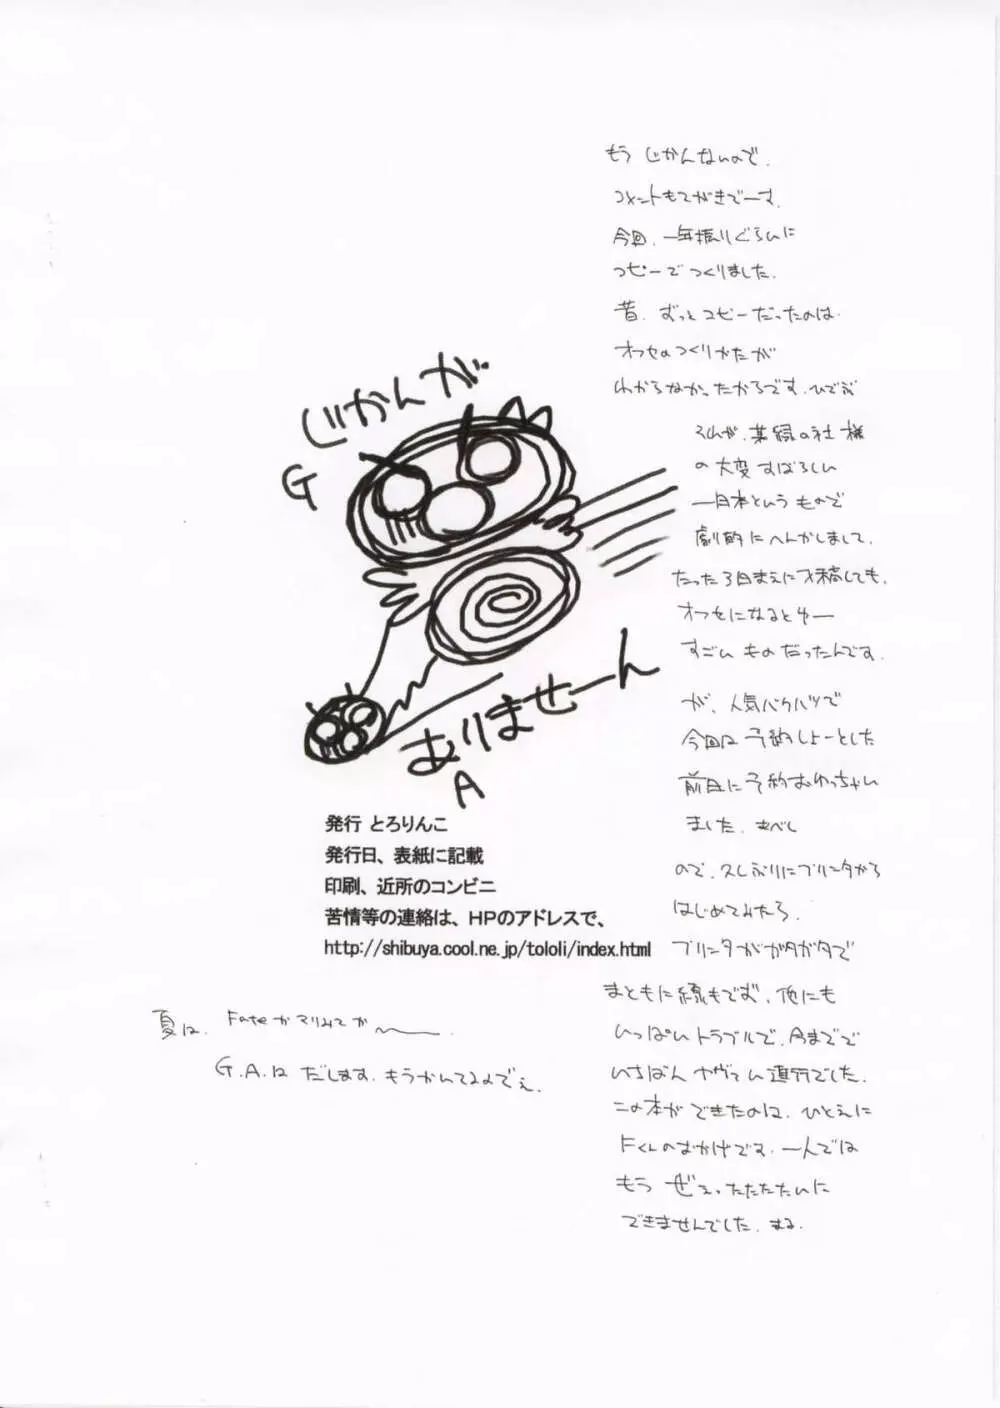 もうじかんないので.
コメントもてがきでーす.
今回、一年振りぐらいに
コピーでつくりました.
昔、ずっとコピーだったのは.
オフセのつくりかたが
わからなかったからです.
の大変すばらしい
一日本というもので
劇的にへんかしまして.
たった3日まえに入稿しても.
オフセになるとゆー
すごいものだったんです.
が、人気バクハツで
今回は予約しよーとした
前日に予約おわっちゃい
ました.
ので、久しぶりにプリンタから
はじめてみたら.
プリンタがガタガタで
まともに線もでず、他にも
いっぱいトラブルで、今までで
いちばんヤヴァい進行でした.
この本ができたのは、ひとえに
Fくんのおかげです.一人では
もう ぜぇったたたたいに
できませんでした.まる.
じかんが
G
ありませーん
A
発行 とろりんこ
発行日、表紙に記載
印刷、近所のコンビニ
苦情等の連絡は、HPのアドレスで、
http://shibuya.cool.ne.jp/tololi/index.html
夏は、Fateかマリみてか〜.
G.A.は だします.もうかんてるのでぇ.